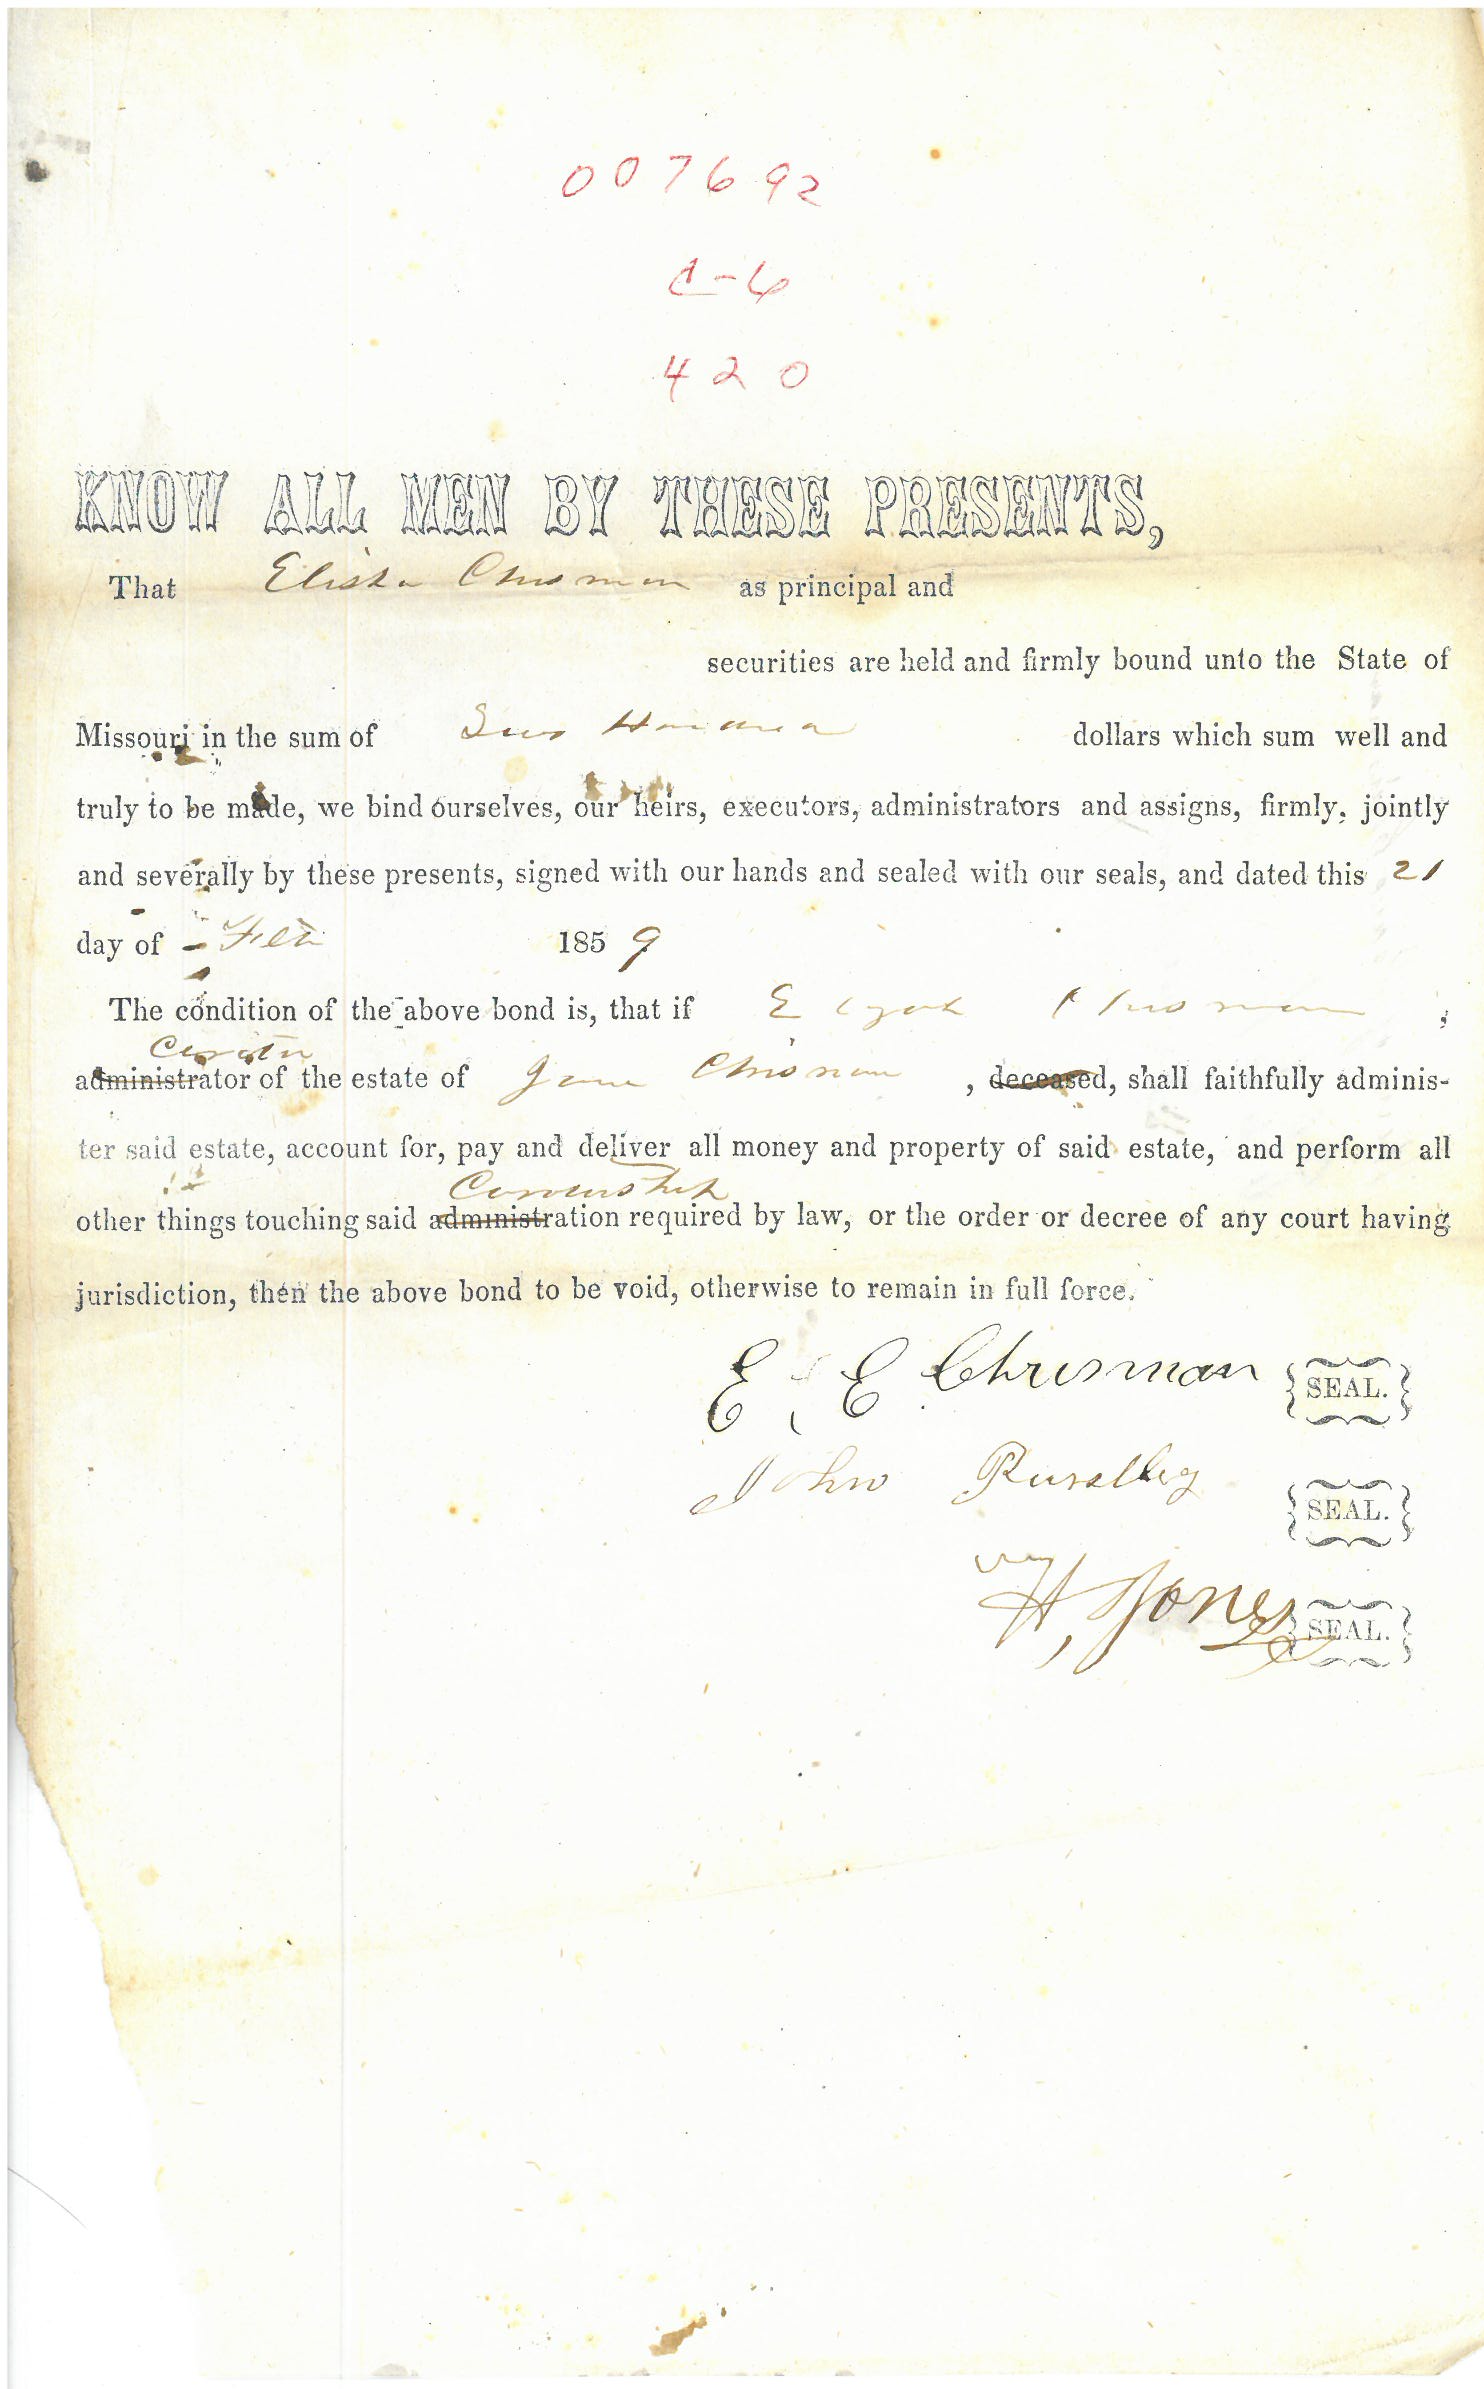 007692
C-6
420
KNOW ALL MEN BY THESE PRESENTS,
That Elisha Chrisman as principal and
securities are held and firmly bound unto the State of
Missouri in the sum of Two Hundred dollars which sum well and
truly to be made, we bind ourselves, our heirs, executors, administrators and assigns, firmly, jointly
and severally by these presents, signed with our hands and sealed with our seals, and dated this 21
day of Feb 1859
The condition of the above bond is, that if Elijah Chrisman ;
Curator
administrator of the estate of Jane Chrisman , deceased, shall faithfully adminis-
ter said estate, account for, pay and deliver all money and property of said estate, and perform all
Curatorship
other things touching said administration required by law, or the order or decree of any court having
jurisdiction, then the above bond to be void, otherwise to remain in full force.
E E Chrisman SEAL.
John SEAL.
Wm H, Jones SEAL.